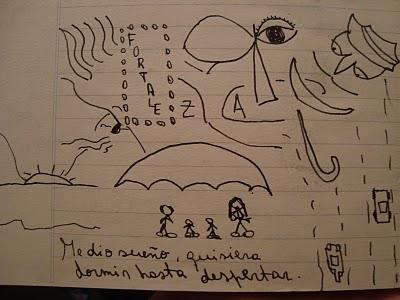 FORTALE
Z A
Medio sueño, quisiera
dormir hasta despertar.